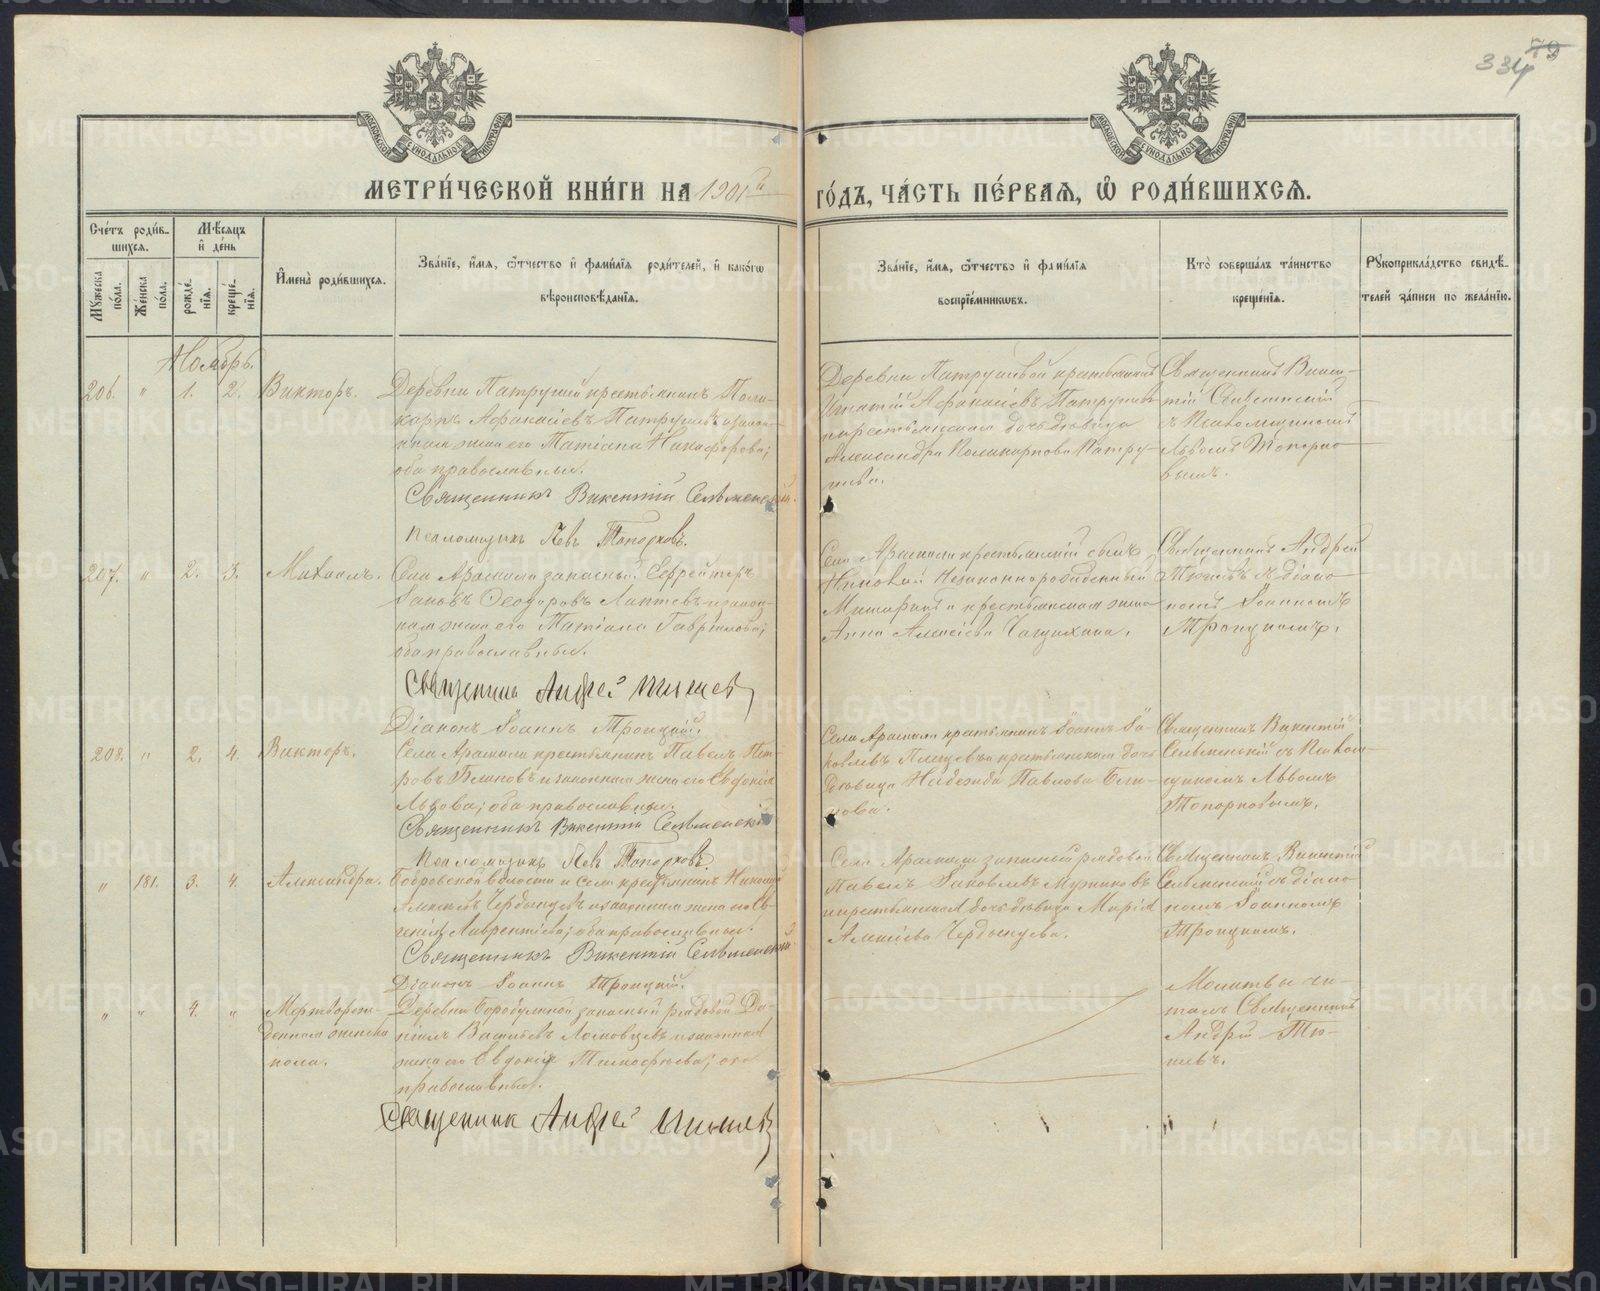 334
МЕТРИ́ЧЕСКОЙ КНИ́ГИ НА 1901й
ГО́ДЪ, ЧА́СТЬ ПЕ́РВАѦ, Ѡ҆ РОДИ́ВШИХСѦ.
Сче́тъ роди́в-
шихсѧ.
Мꙋжеска по́ла.
Же́нска по́ла.
Мѣ́сѧцъ
и҆ де́нь
рожде́-
нїѧ.
креще́-
нїѧ.
И҆мена̀ роди́вшихсѧ.
Зва́нїе, и҆́мѧ, ѻ҆́тчество и҆ фами́лїѧ роди́телей, и҆ како́гѡ
вѣроисповѣ́данїѧ.
Зва́нїе, и҆́мѧ, ѻ҆́тчество и҆ фами́лїѧ
воспрїе́мникѡвъ.
Кто̀ соверша́лъ та́инство
креще́нїѧ.
Рꙋкоприкла́дство свидѣ́-
телей за́писи по жела́нїю.
Ноябрь.
206. " 1. 2. Викторъ.
Деревни Патрушей крестьянинъ Поли-
карпъ Афанасіевъ Патрушевъ и закон-
ная жена его Татіана Никифорова;
оба православные.
Священникъ Викентій Сельменскій.
Псаломщикъ Левъ Топорковъ.
Деревни Патрушевой крестьянинъ
Игнатій Афанасіевъ Патрушевъ
и крестьянская дочь девица
Александра Поликарпова Патру-
шева.
Священникъ Викен-
тій Сельменскій
съ Псаломщикомъ
Львомъ Топорко-
вымъ.
207. " 2. 3. Михаилъ.
Села Арамили запасный Ефрейторъ
Іаковъ Ѳеодоровъ Лаптевъ и закон-
ная жена его Татіана Гаврилова;
оба православные.
Священникъ Андрей
Діаконъ Іоаннъ Троицкій.
Села Арамили крестьянскій сынъ
Николай Незаконнорожденный
и крестьянская жена
Анна Алексіева
Священникъ Андрей
съ діако-
номъ Іоанномъ
Троицкимъ.
208. " 2. 4. Викторъ.
Села Арамили крестьянинъ Павелъ Пет-
ровъ Блиновъ и законная жена его Евдокія
Львова; оба православные.
Священникъ Викентій Сельменскій
Псаломщикъ Левъ Топорковъ
Села Арамили крестьянинъ Іоаннъ Іа-
ковлевъ и крестьянская дочь
девица Надежда Павлова Бли-
нова.
Священникъ Викентій
Сельменскій съ Псалом-
щикомъ Львомъ
Топорковымъ.
" 181. 3. 4. Александра.
Бобровской волости и села крестьянинъ Николай
Алексіевъ Чердынцевъ и законная жена его Ев-
генія Лаврентіева; оба православные.
Священникъ Викентій Сельменскій
Діаконъ Іоаннъ Троицкій.
Села Арамили запасный рядовой
Павелъ Іаковлевъ
и крестьянская дочь девица Марія
Алексіева Чердынцева.
Священникъ Викентій
Сельменскій съ діако-
номъ Іоанномъ
Троицкимъ.
" " 4. " Мертворож-
денная женска
пола.
Деревни запасный рядовой Да-
ніилъ Васильевъ и законная
жена его Евдокія Тимофеева; оба
православные.
Священник Андрей
Молитвы чи-
талъ Священникъ
Андрей